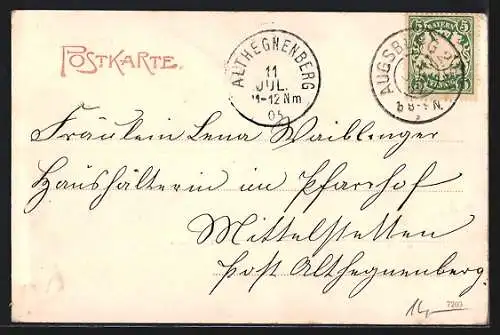 POSTKARTE.
ALTHEGNENBERG
11
JUL.
11-12 Nm
05
AUGSB
BAYERN
5 5
PFENNIG
Fräulein Lena Waiblinger
Haushälterin im Pfarrhof
Mittelstetten
Post Althegnenberg.
7203